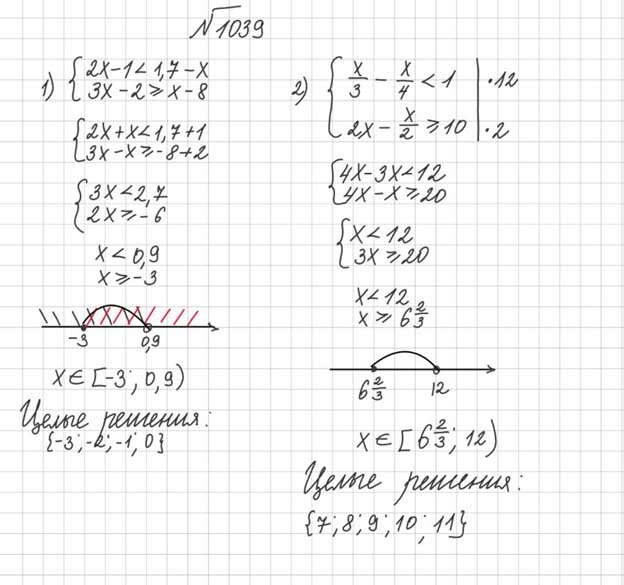 №1039
1) { 2x-1<1,7-x
3x-2≥x-8
{ 2x+x<1,7+1
3x-x≥-8+2
{ 3x<2,7
2x≥-6
x<0,9
x≥-3
-3 0,9
x∈[-3; 0,9)
Целые решения:
{-3; -2; -1; 0}
2) { x/3 - x/4 < 1 | ·12
2x - x/2 ≥ 10 | ·2
{ 4x-3x<12
4x-x≥20
{ x<12
3x≥20
x<12
x≥6 2/3
6 2/3 12
x∈[6 2/3; 12)
Целые решения:
{7; 8; 9; 10; 11}